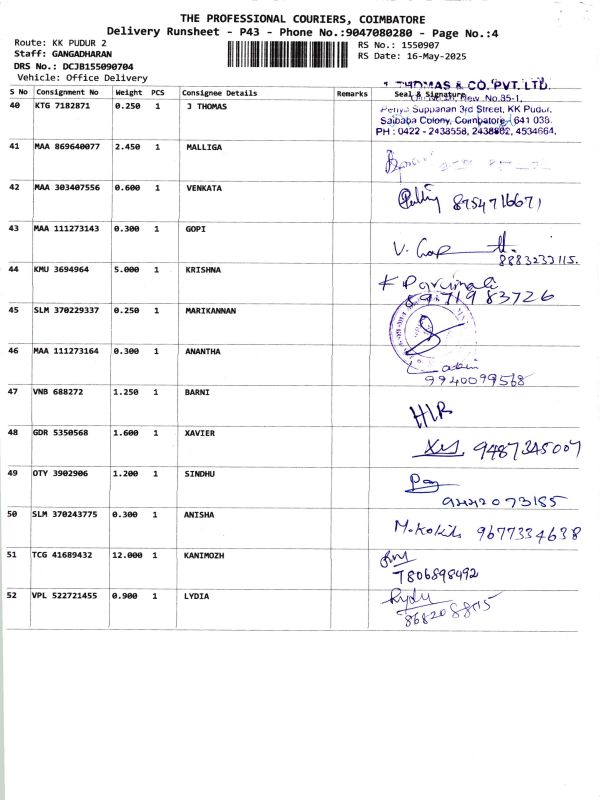 THE PROFESSIONAL COURIERS, COIMBATORE
Delivery Runsheet - P43 - Phone No.:9047080280 - Page No.:4
Route: KK PUDUR 2
RS No.: 1550907
Staff: GANGADHARAN
RS Date: 16-May-2025
DRS No.: DCJB155090704
Vehicle: Office Delivery
S No Consignment No Weight PCS Consignee Details Remarks Seal & Signature
THOMAS & CO. PVT. LTD.
New .No.85-1,
40 KTG 7182871 0.250 1 J THOMAS
Periya Suppanan 3rd Street, KK Pudur,
Saibaba Colony, Coimbatore - 641 038.
PH : 0422 - 2438558, 2438862, 4534664,
41 MAA 869640077 2.450 1 MALLIGA
42 MAA 303407556 0.600 1 VENKATA
8754716671
43 MAA 111273143 0.300 1 GOPI
V. Gop
8883233115.
44 KMU 3694964 5.000 1 KRISHNA
9171983726
45 SLM 370229337 0.250 1 MARIKANNAN
46 MAA 111273164 0.300 1 ANANTHA
9940099568
47 VNB 688272 1.250 1 BARNI
HLR
48 GDR 5350568 1.600 1 XAVIER
9487345007
49 OTY 3902906 1.200 1 SINDHU
50 SLM 370243775 0.300 1 ANISHA
M.Kokila 9677334638
51 TCG 41689432 12.000 1 KANIMOZH
7806898492
52 VPL 522721455 0.900 1 LYDIA
Lydu